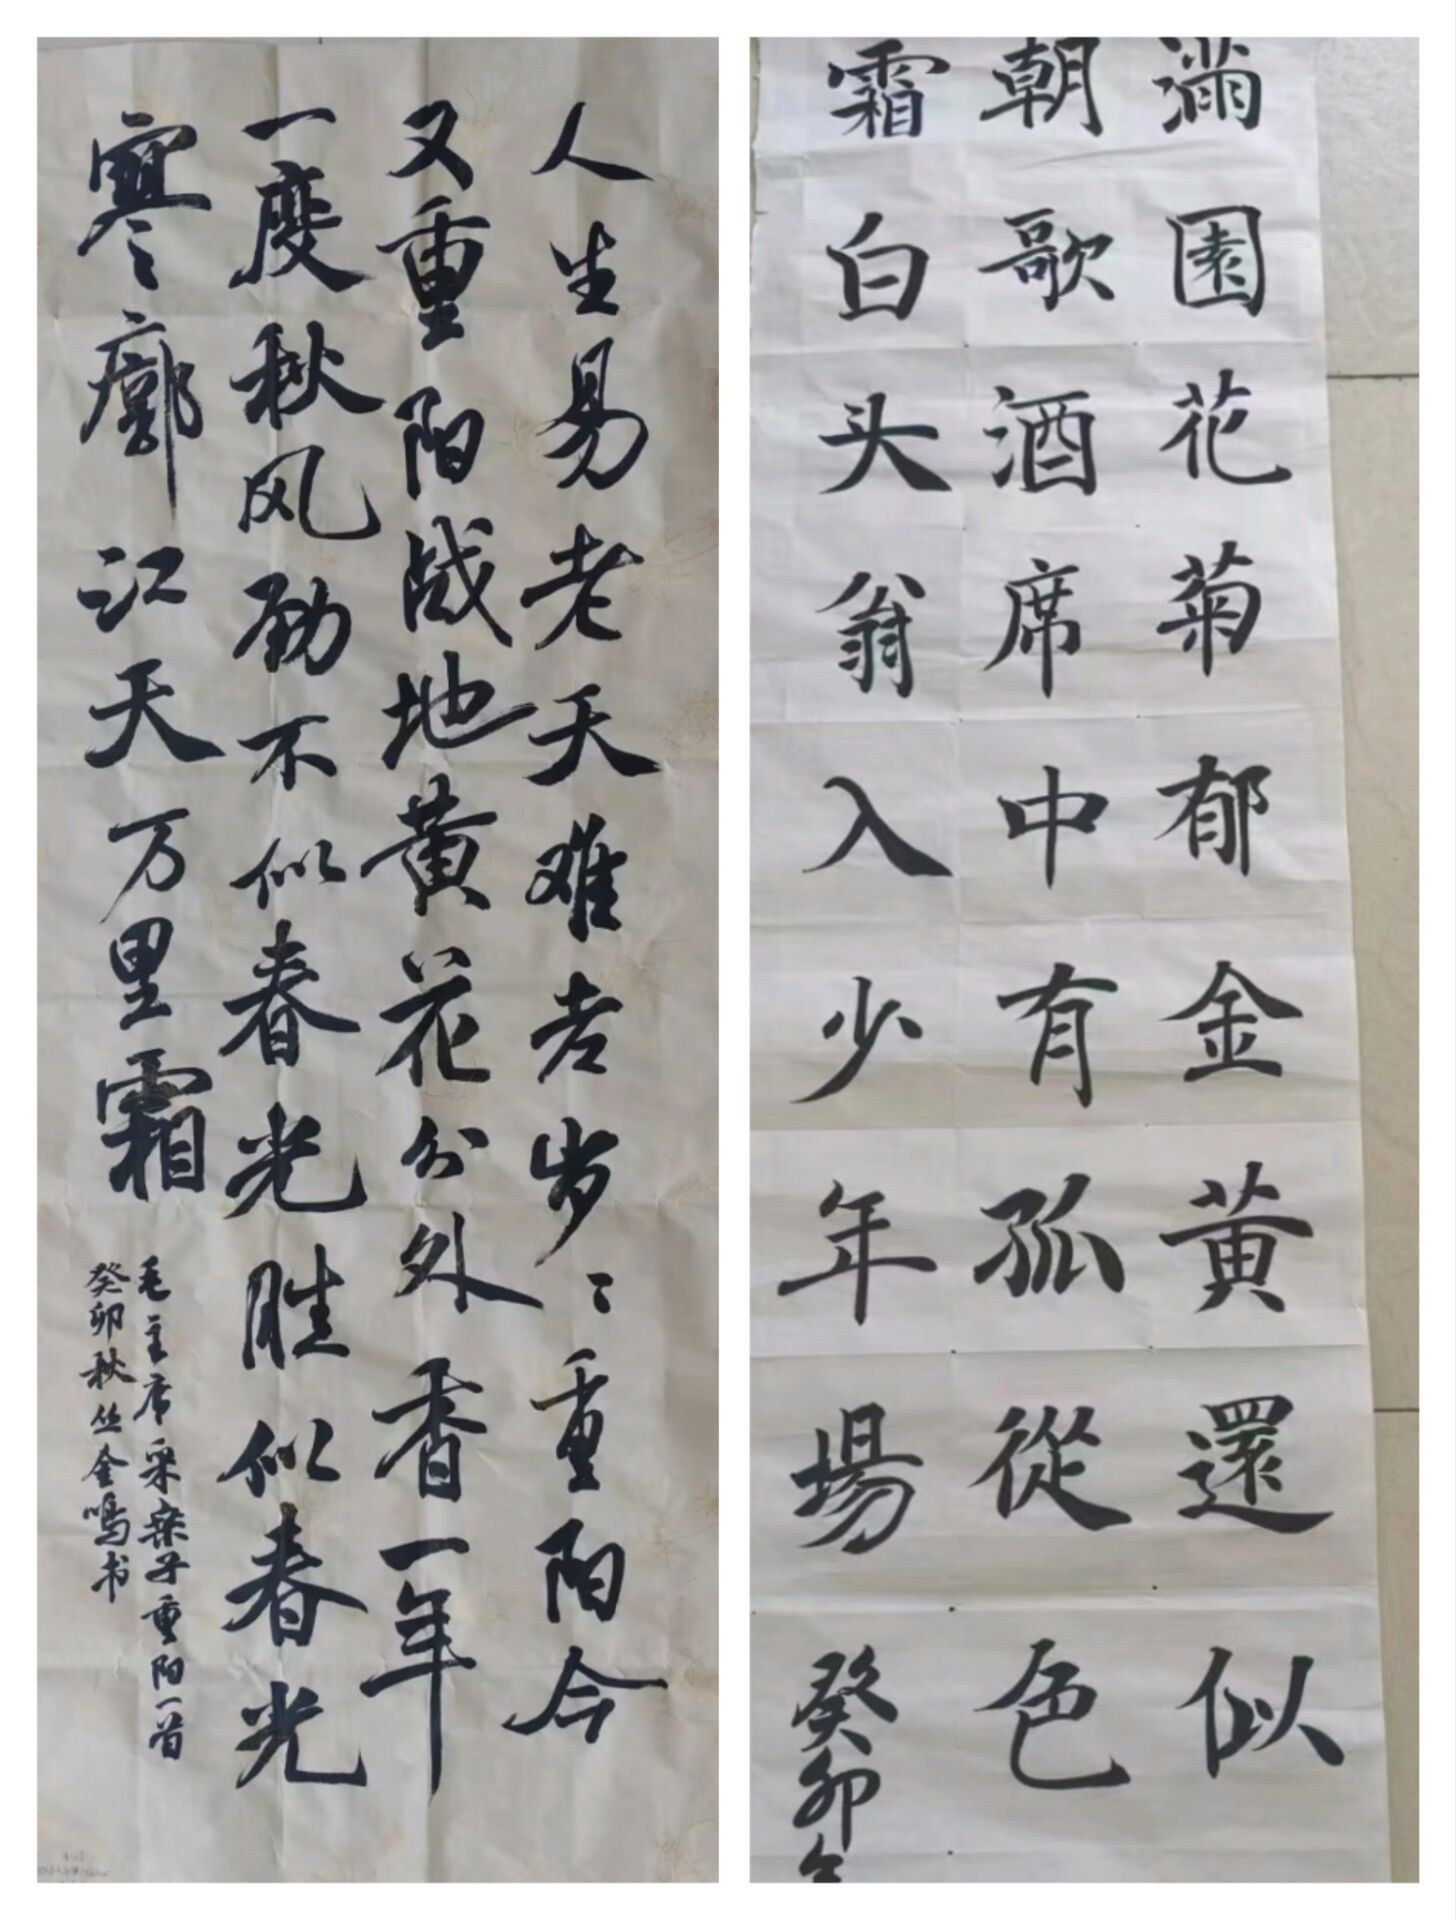 人生易老天难老岁々重阳今
又重阳战地黄花分外香一年
一度秋风劲不似春光胜似春光
寥廓江天万里霜
毛主席采桑子重阳一首
癸卯秋丛金鸣书
满園花菊郁金黄
還似
朝歌酒席中有孤從色
霜白头翁入少年場
癸卯